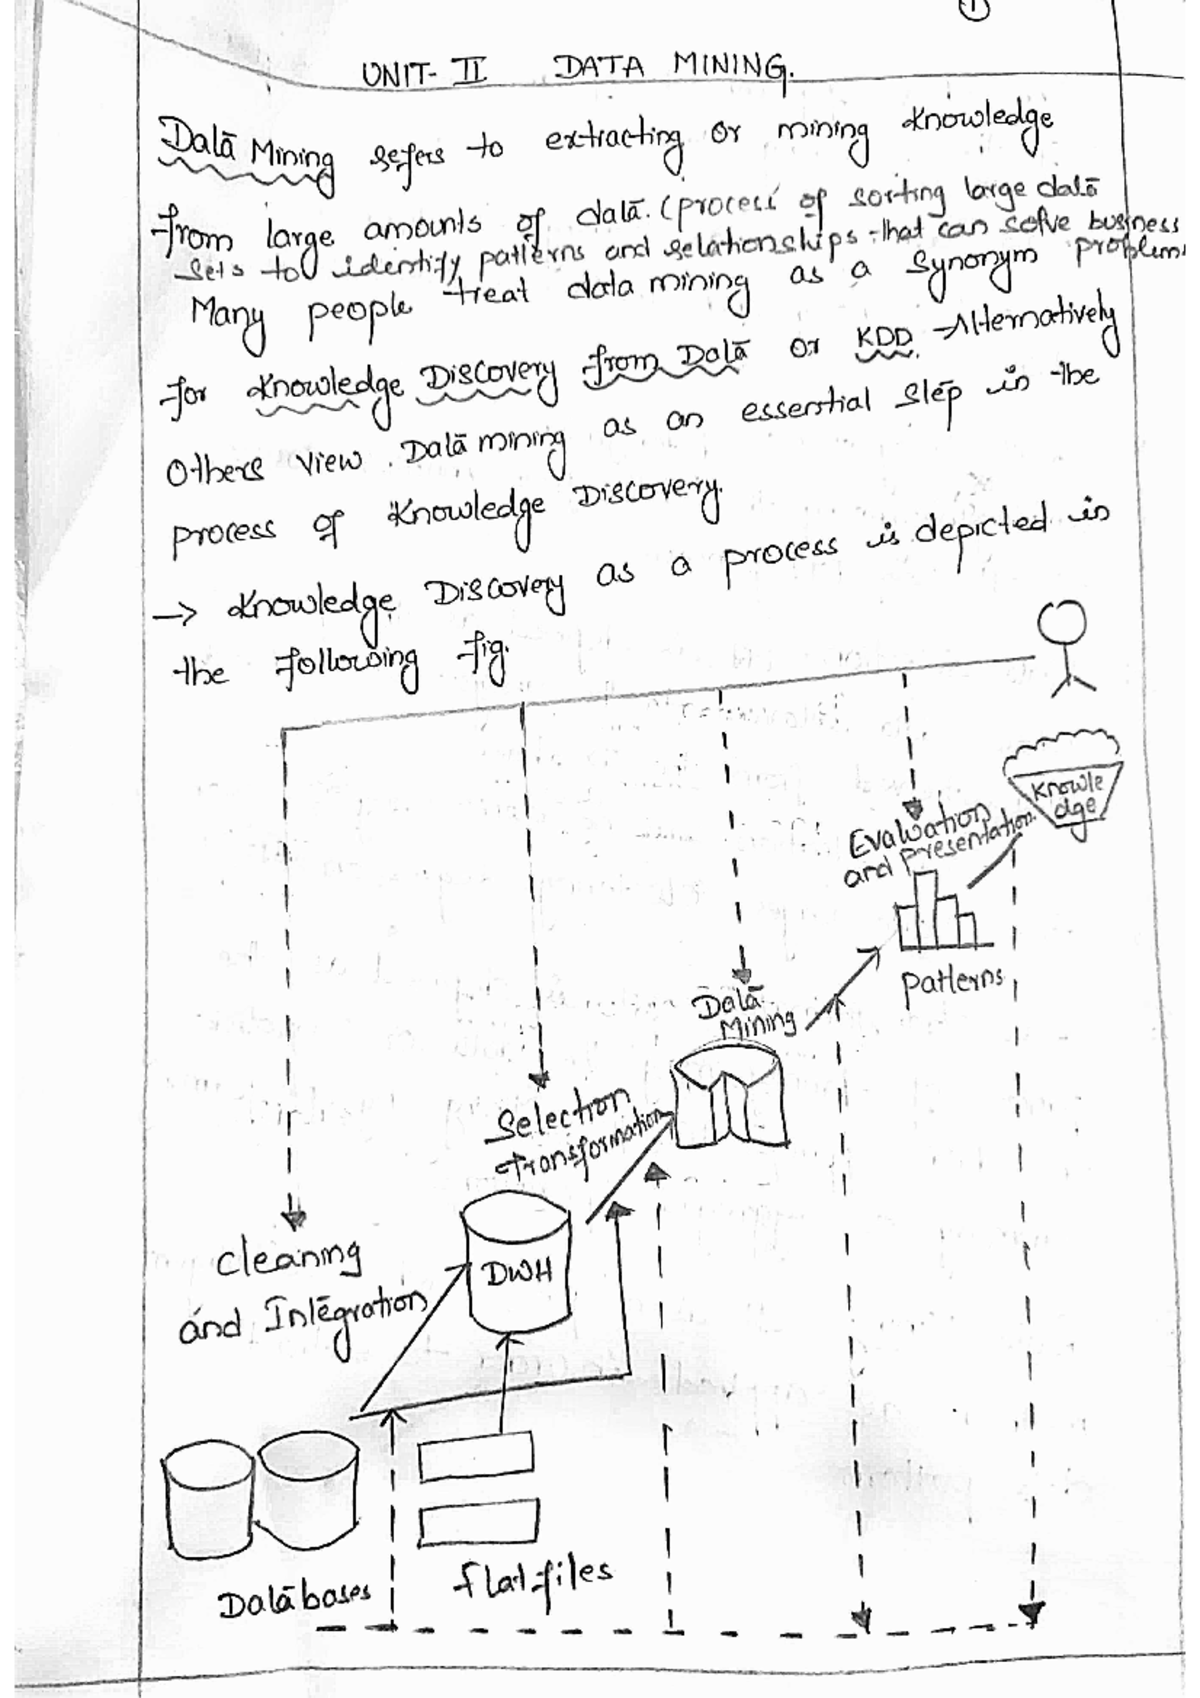 1
UNIT- II DATA MINING.
Data Mining refers to extracting or mining knowledge
from large amounts of data. (process of sorting large data
sets to identify patterns and relationships that can solve business
problems
Many people treat data mining as a synonym
for Knowledge Discovery from Data or KDD. Alternatively
Others view. Data mining as an essential step in the
process of Knowledge Discovery.
→ Knowledge Discovery as a process is depicted in
the following fig.
Knowle
dge
Evaluation
and presentation
patterns
Data
Mining
Selection
Transformation
DWH
Cleaning
and Integration
Databases
flat files